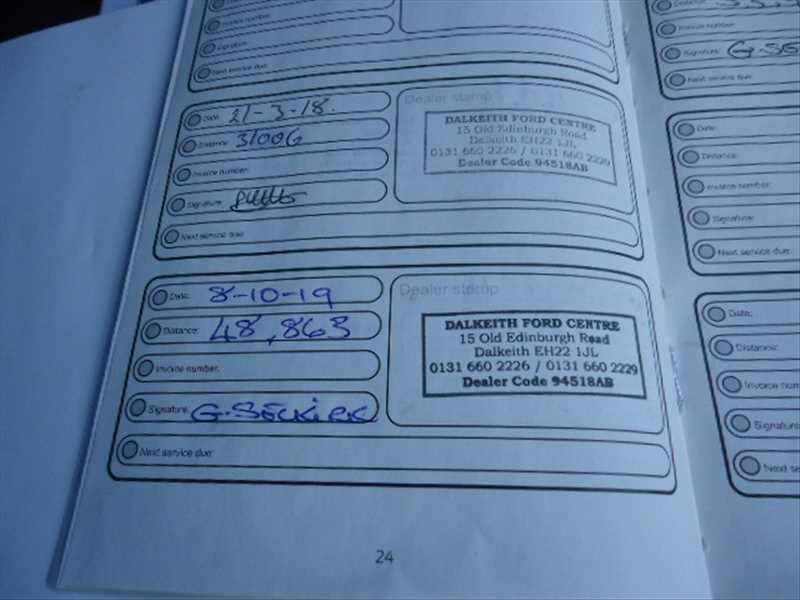 Invoice number:
Signature:
Next service due:
Date: 21-3-18.
Distance: 31006
Invoice number:
Signature:
Next service due:
Dealer stamp
DALKEITH FORD CENTRE
15 Old Edinburgh Road
Dalkeith EH22 1JL
0131 660 2226 / 0131 660 2229
Dealer Code 94518AB
Date: 8-10-19
Distance: 48,863
Invoice number:
Signature: G. SELKIRK
Next service due:
Dealer stamp
DALKEITH FORD CENTRE
15 Old Edinburgh Road
Dalkeith EH22 1JL
0131 660 2226 / 0131 660 2229
Dealer Code 94518AB
24
Distance:
Invoice number:
Signature: G. SE
Next service due:
Date:
Distance:
Invoice number:
Signature:
Next service due:
Date:
Distance:
Invoice number
Signature
Next se